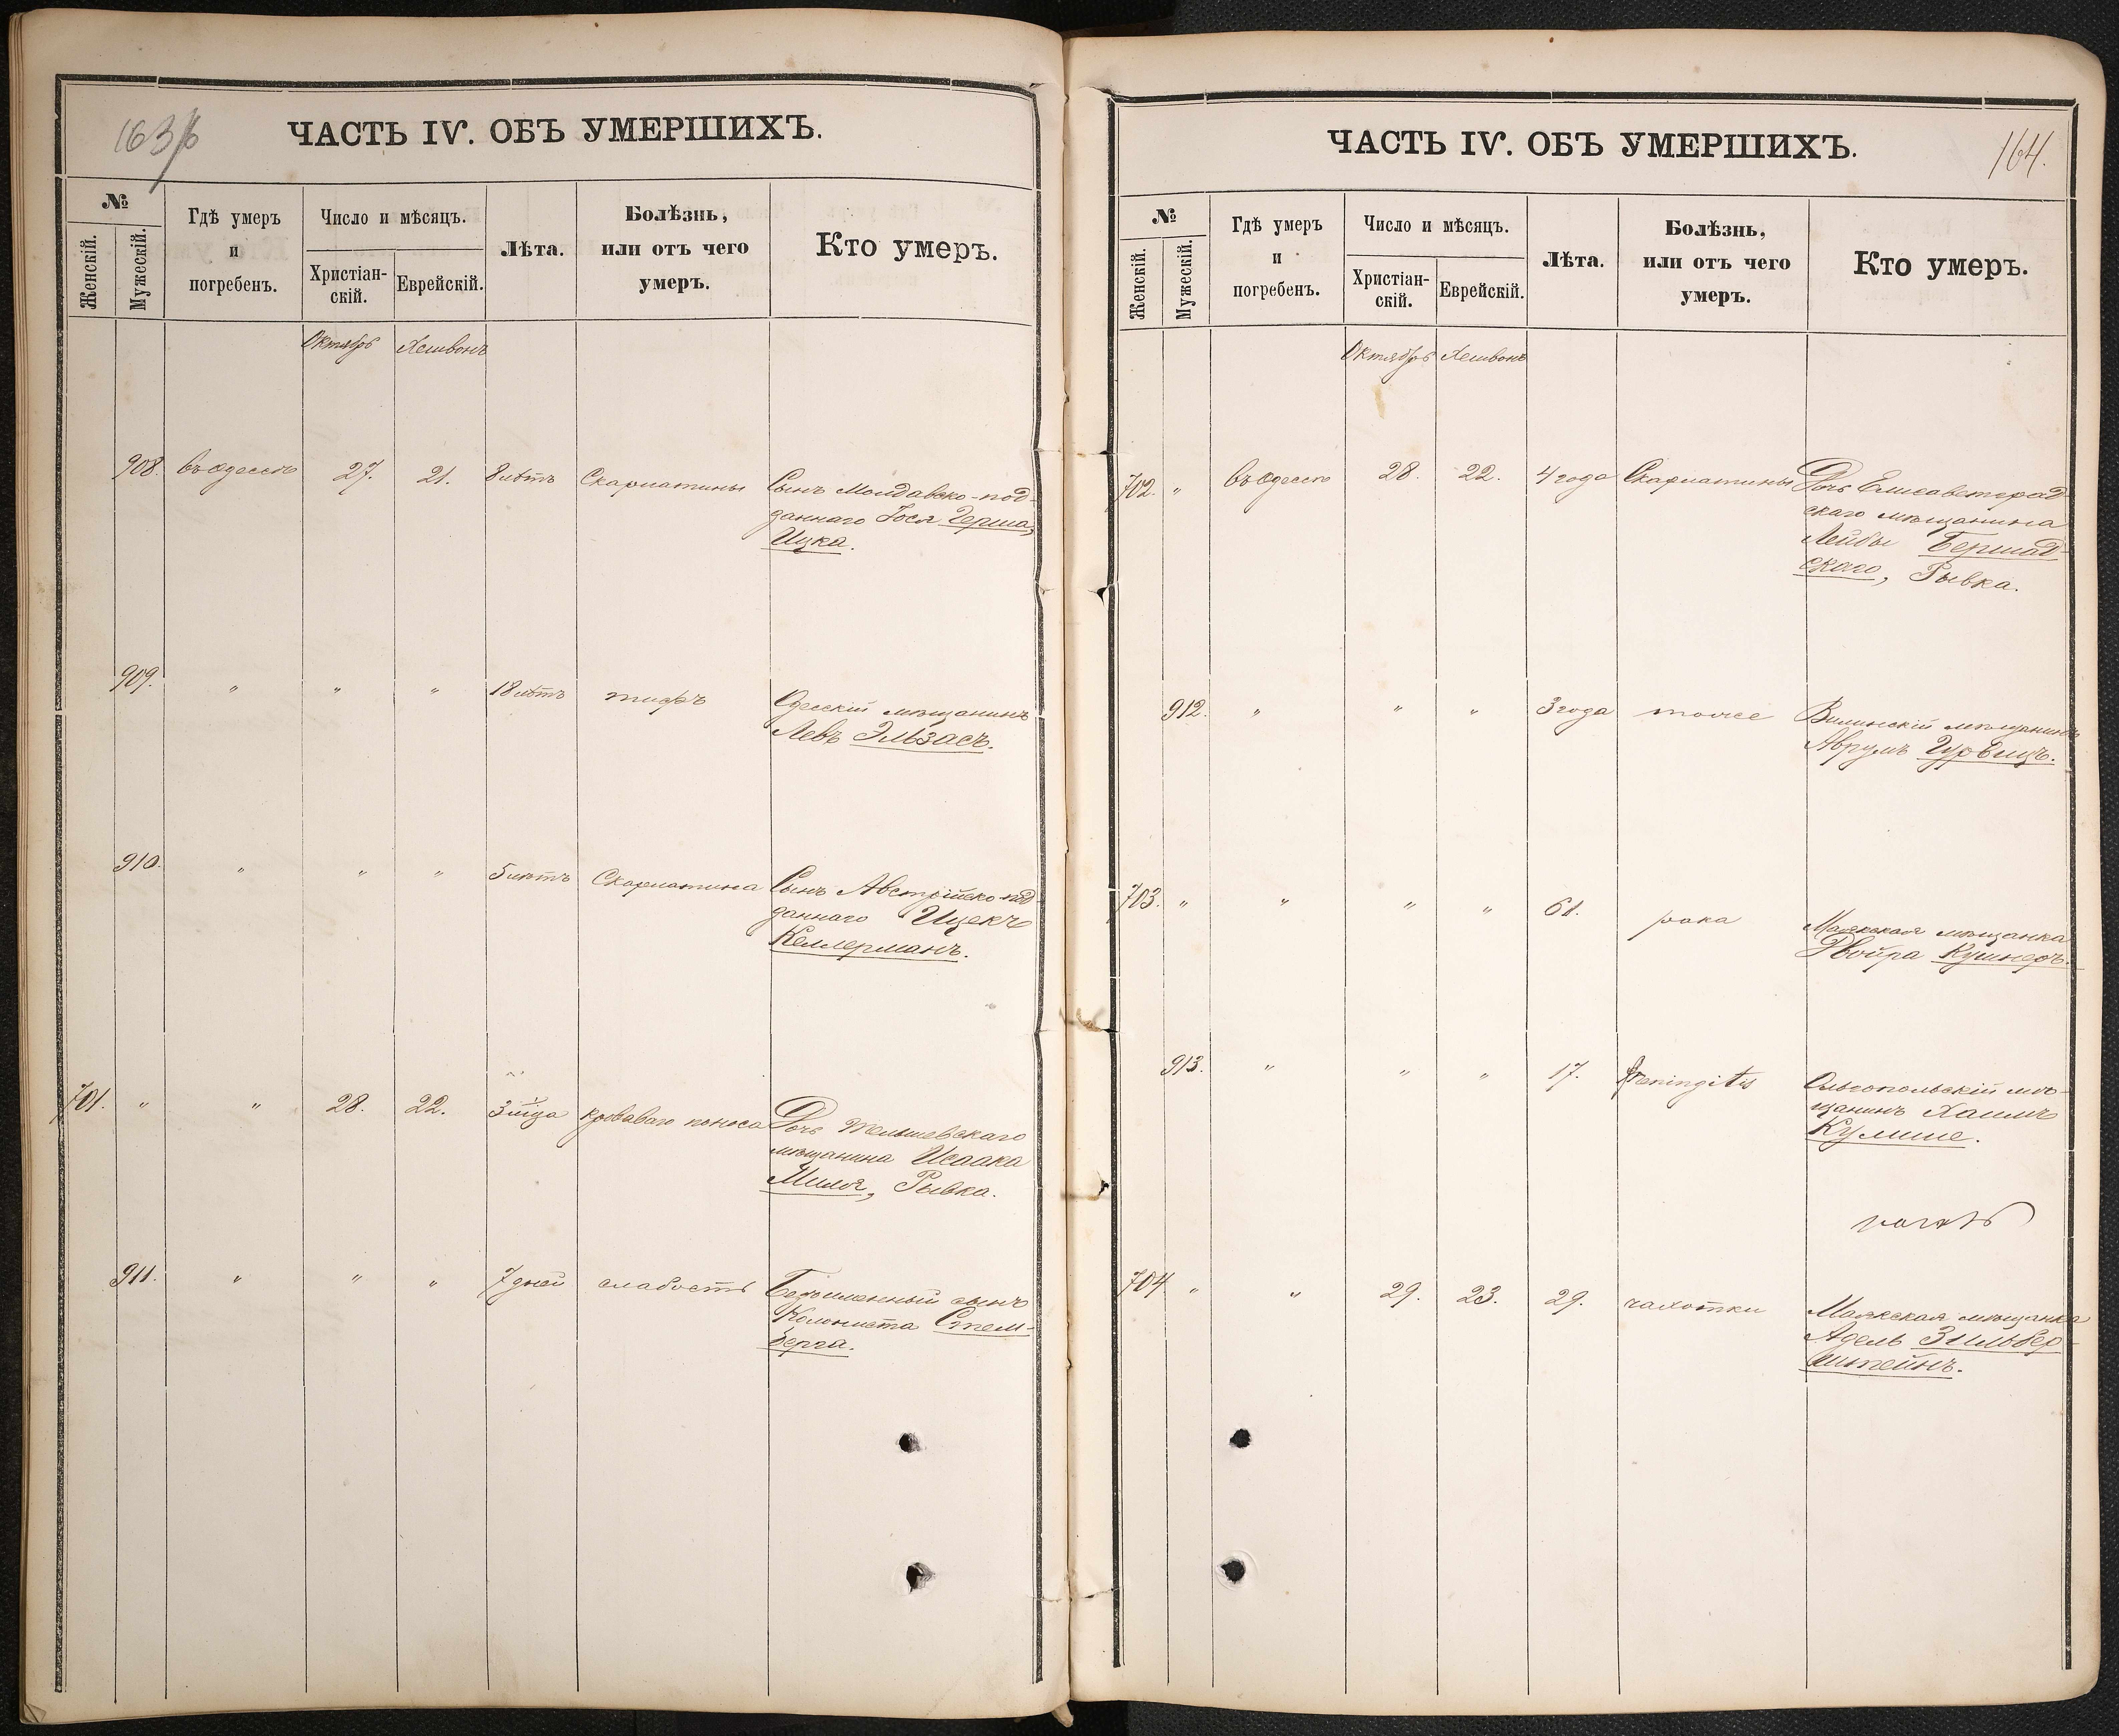 163 б
ЧАСТЬ IV. ОБЪ УМЕРШИХЪ.
№
Женскій.
Мужескій.
Гдѣ умеръ
и
погребенъ.
Число и мѣсяцъ.
Христіан-
скій.
Еврейскій.
Лѣта.
Болѣзнь,
или отъ чего
умеръ.
Кто умеръ.
Октябрь Хешвонъ
908. въ Одессѣ 27. 21. 8 лѣтъ Скарлатины Сынъ Молдавско-под-
даннаго Іося Герша,
Ицка.
909. " " " 18 лѣтъ тифъ Одесскій мѣщанинъ
Левъ Эльзасъ.
910. " " " 5 лѣтъ Скарлатина Сынъ Австрійско-под-
даннаго Ицекъ
Келлерманъ.
701. " " 28. 22. 3 мца кроваваго поноса Дочь Тельшевскаго
мѣщанина Исаака
Миля, Рывка.
911. " " " 7 дней слабость Безъименный сынъ
Колониста Стем-
берга.
ЧАСТЬ IV. ОБЪ УМЕРШИХЪ.
164.
№
Женскій.
Мужескій.
Гдѣ умеръ
и
погребенъ.
Число и мѣсяцъ.
Христіан-
скій.
Еврейскій.
Лѣта.
Болѣзнь,
или отъ чего
умеръ.
Кто умеръ.
Октябрь Хешвонъ
702. " въ Одессѣ 28. 22. 4 года Скарлатины Дочь Елисаветград-
скаго мѣщанина
Лейбы Бершад-
скаго, Рывка.
912. " " " 3 года тоже Виленскій мѣщанинъ
Аврумъ Гурвицъ.
703. " " " " 61. рака Маякская мѣщанка
Двойра Кушнеръ.
913. " " " 17. meningitis Ольгопольскій мѣ-
щанинъ Хаимъ
Кулише.
704 " " 29. 23. 29. чахотки Маякская мѣщанка
Адель Зильбер-
штейнъ.